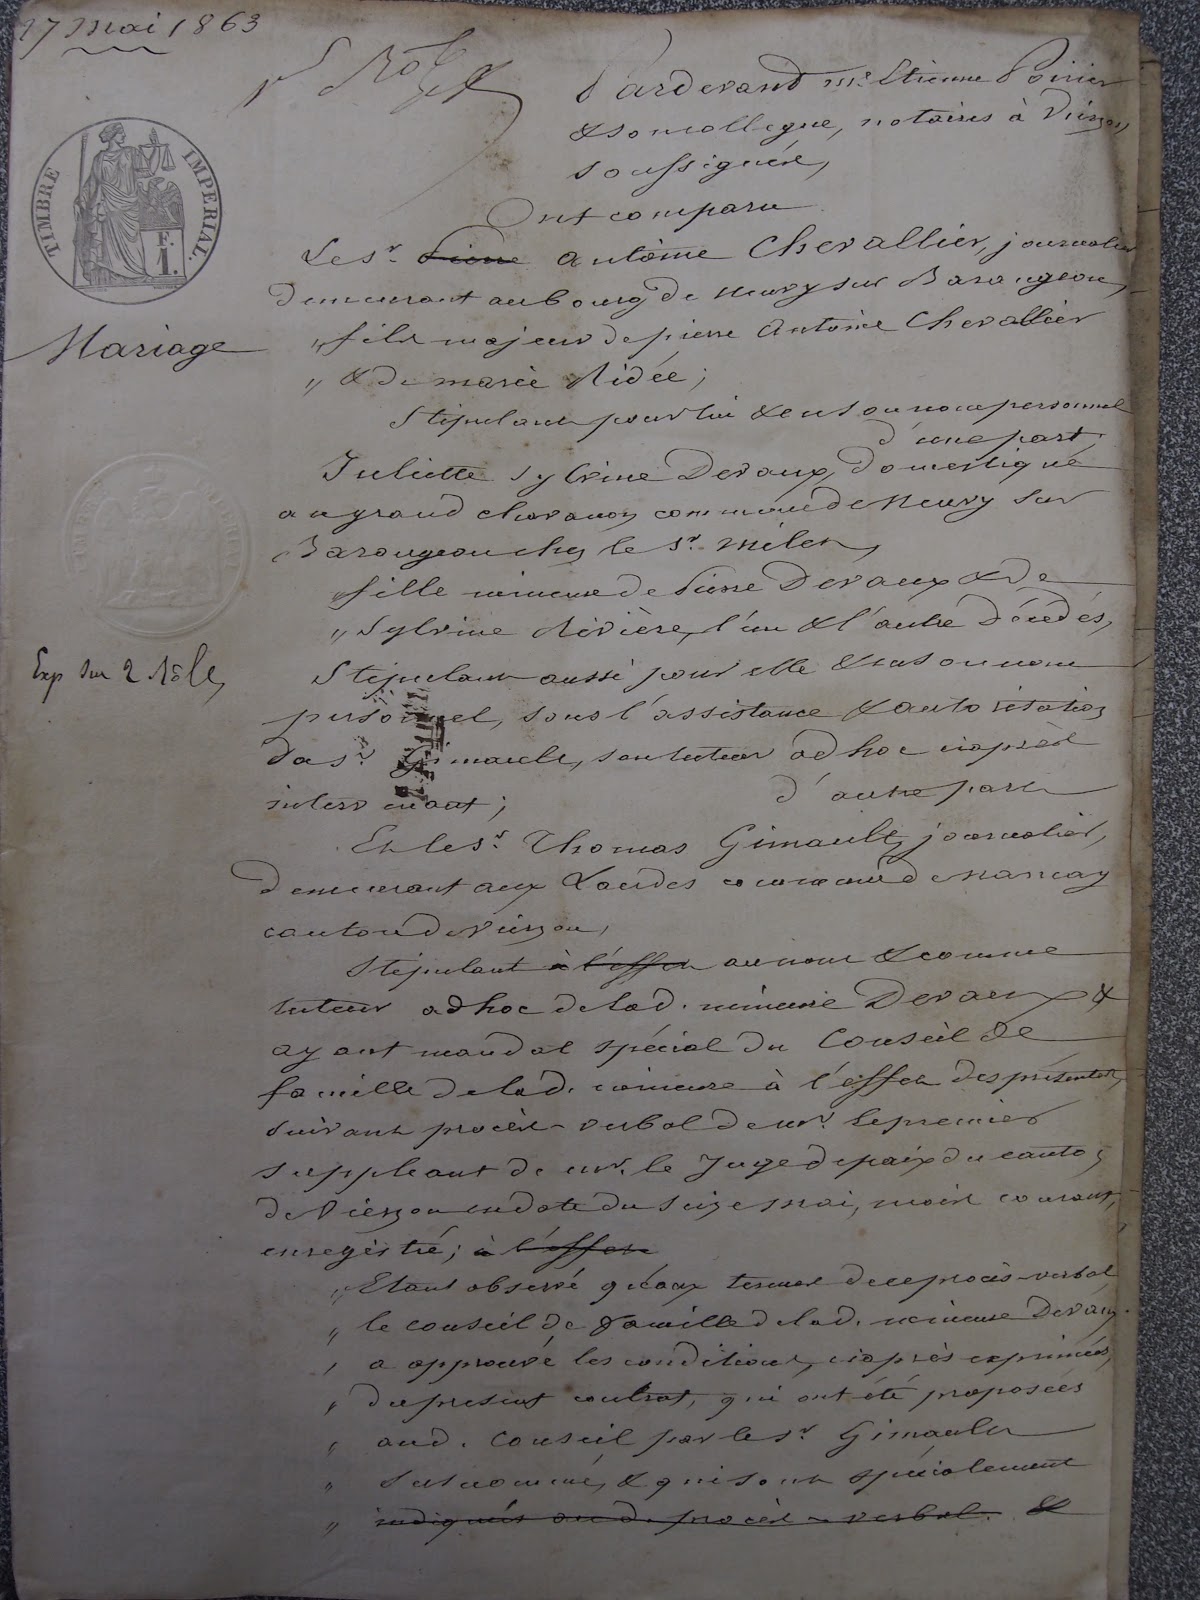 17 mai 1863
Pardevant Me. Etienne Poirier
& son collegue, notaires à Vierzon,
soussignés,
Ont comparu
TIMBRE IMPERIAL.
F.
1.
Le sr. Pierre antoine Chevallier, journalier
demeurant au bourg de neuvy sur Barangeon,
Mariage
„ fils majeur de pierre Antoine Chevallier
„ & de marie Ridée;
Stipulant pour lui & en son nom personnel
d'une part;
Juliette Sylvine Devaux, domestique
au grand chavanon commune de Neuvy sur
Barangeon chez le sr. Milet,
„ fille mineure de Pierre Devaux & de
„ Sylvine Rivière, l'un & l'autre décédés,
Exp sur 2 Rôles
Stipulant aussi pour elle & en son nom
personnel, sous l'assistance & autorisation
du sr. Gimault, son tuteur ad hoc ciaprès
intervenant; d'autre part
Et le sr. Thomas Gimault, journalier,
demeurant aux Landes commune de Nançay
canton de Vierzon,
Stipulant à l'effet au nom & comme
tuteur ad hoc de lad. mineure Devaux &
ayant mandat spécial du Conseil de
famille de lad. mineure à l'effet des présentes,
suivant procès-verbal de mr. le premier
suppleant de mr. le Juge de paix du canton
de Vierzon en date du seize mai, mois courant,
enregistré; à l'effet
„ Etant observé qu'aux termes de ce procès-verbal
„ le conseil de famille de lad. mineure Devaux
„ a approuvé les conditions, ciaprès exprimées,
„ du present contrat, qui ont été proposées
„ aud. Conseil par le sr. Gimault
„ susnommé, & qui sont spécialement
„ indiqués aud. procès-verbal. &